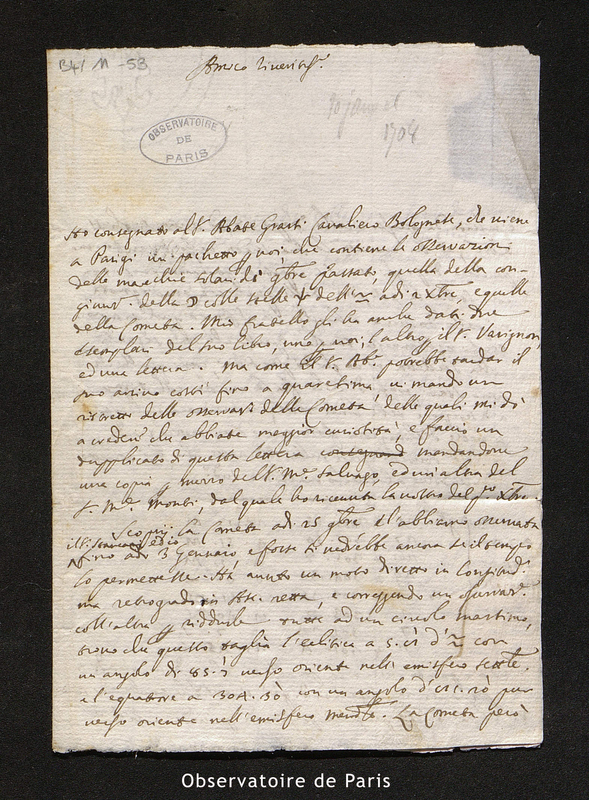 B4/11-53
Amico
OBSERVATOIRE
DE
PARIS
10 janvier
1708
Ho consegnato al S. Abate Grassi Cavaliero Bolognese, che viene
a Parigi un pachetto p voi, che contiene le osservazioni
delle macchie solari di 9bre passato, quella della con-
giunz. della ☽ colle stelle ψ dell'♒ adi 2 Xbre, e quelle
della Cometa. Mio fratello gli ha anche dati due
esemplari del suo libro, uno p voi, l'altro p il S. Varignon,
ed una lettera. Ma come il S. Ab. potrebbe tardar il
suo arrivo costì fino a quaresima, vi mando un
ristretto delle osservaz. della Cometa, delle quali mi dò
a creder che abbiate maggior curiosità, e faccio un
dupplicato di questa lettera mandandone
una copia p mezzo del S. Me. Salvago, ed un'altra del
S. Me. Monti, dal quale ho ricevuta la vostra del po Xbre.
Scoprij la Cometa adi 25 9bre e l'abbiamo osservata
fino adi 3 Gennaio e forse si vedrebbe ancora se il tempo
lo permettesse. Ha avuto un moto diretto in Longitud.
ma retrogrado in As. retta, e correggendo un osservaz.
coll'altra p ridurle tutte ad un circolo massimo,
trovo che questo taglia l'eclittica a 5. d'♒ con
un angolo di 85. verso oriente nell'emisfero settle.
e l'equatore a 304. 30 con un angolo d' pur
verso oriente nell'emisfero meridle. La Cometa però
Observatoire de Paris